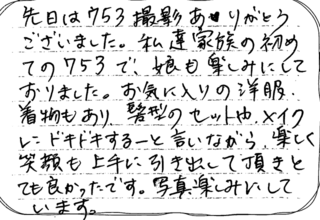 先日は753撮影ありがとう
ございました。私達家族の初め
ての753で、娘も楽しみにして
おりました。お気に入りの洋服、
着物もあり、髪型のセットや、メイク
にドキドキするーと言いながら、楽しく
笑顔も上手に引き出して頂きと
ても良かったです。写真楽しみにして
います。